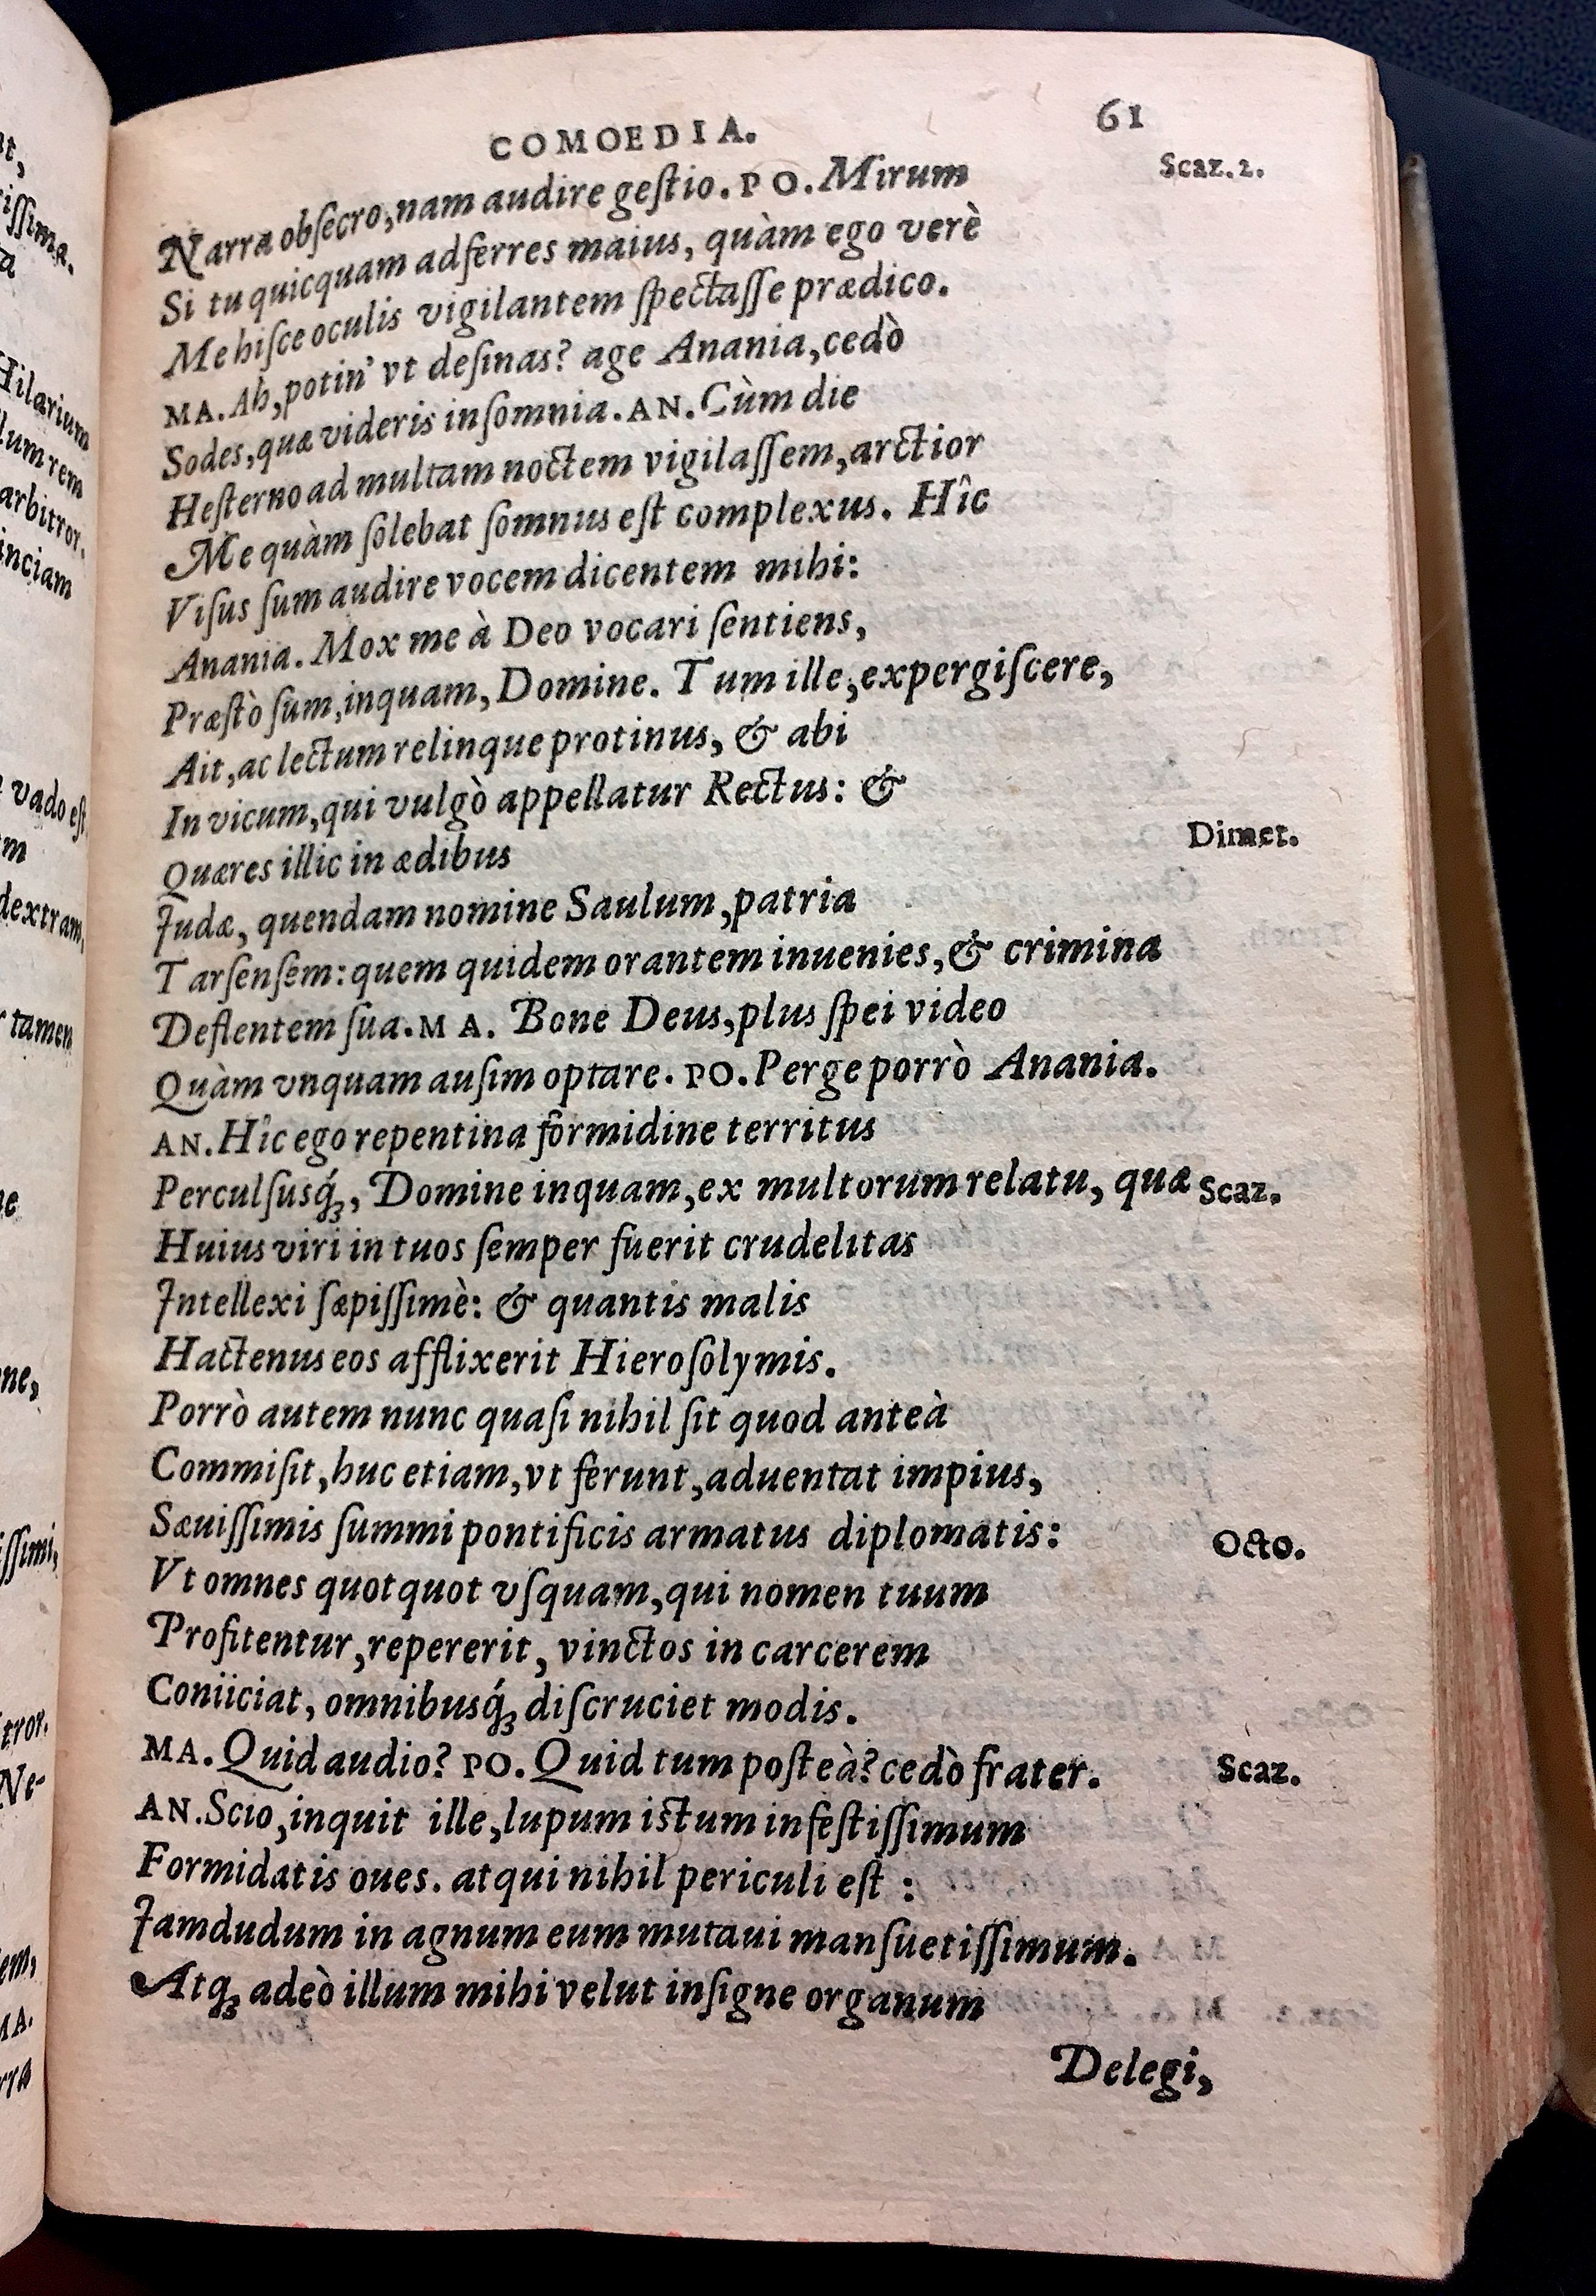 COMOEDIA. 61
Narra obſecro, nam audire geſtio. PO. Mirum Scaz. 2.
Si tu quicquam adferres maius, quàm ego verè
Me hiſce oculis vigilantem ſpectaſſe prædico.
MA. Ah, potin' vt deſinas? age Anania, cedò
Sodes, quæ videris inſomnia. AN. Cùm die
Heſterno ad multam noctem vigilaſſem, arctior
Me quàm ſolebat ſomnus eſt complexus. Hîc
Viſus ſum audire vocem dicentem mihi:
Anania. Mox me à Deo vocari ſentiens,
Præſtò ſum, inquam, Domine. Tum ille, expergiſcere,
Ait, ac lectum relinque protinus, & abi
In vicum, qui vulgò appellatur Rectus: &
Quæres illic in ædibus Dimet.
Judæ, quendam nomine Saulum, patria
Tarſenſem: quem quidem orantem inuenies, & crimina
Deflentem ſua. MA. Bone Deus, plus ſpei video
Quàm vnquam auſim optare. PO. Perge porrò Anania.
AN. Hîc ego repentina formidine territus
Perculſusq́ꝫ, Domine inquam, ex multorum relatu, quæ Scaz.
Huius viri in tuos ſemper fuerit crudelitas
Intellexi ſæpiſſimè: & quantis malis
Hactenus eos afflixerit Hieroſolymis.
Porrò autem nunc quaſi nihil ſit quod anteà
Commiſit, huc etiam, vt ferunt, aduentat impius,
Sæuiſſimis ſummi pontificis armatus diplomatis: Octo.
Vt omnes quotquot vſquam, qui nomen tuum
Profitentur, repererit, vinctos in carcerem
Coniiciat, omnibusq́ꝫ diſcruciet modis.
MA. Quid audio? PO. Quid tum poſteà? cedò frater. Scaz.
AN. Scio, inquit ille, lupum iſtum infeſtiſſimum
Formidatis oues. atqui nihil periculi eſt :
Jamdudum in agnum eum mutaui manſuetiſſimum.
Atqꝫ adeò illum mihi velut inſigne organum
Delegi,